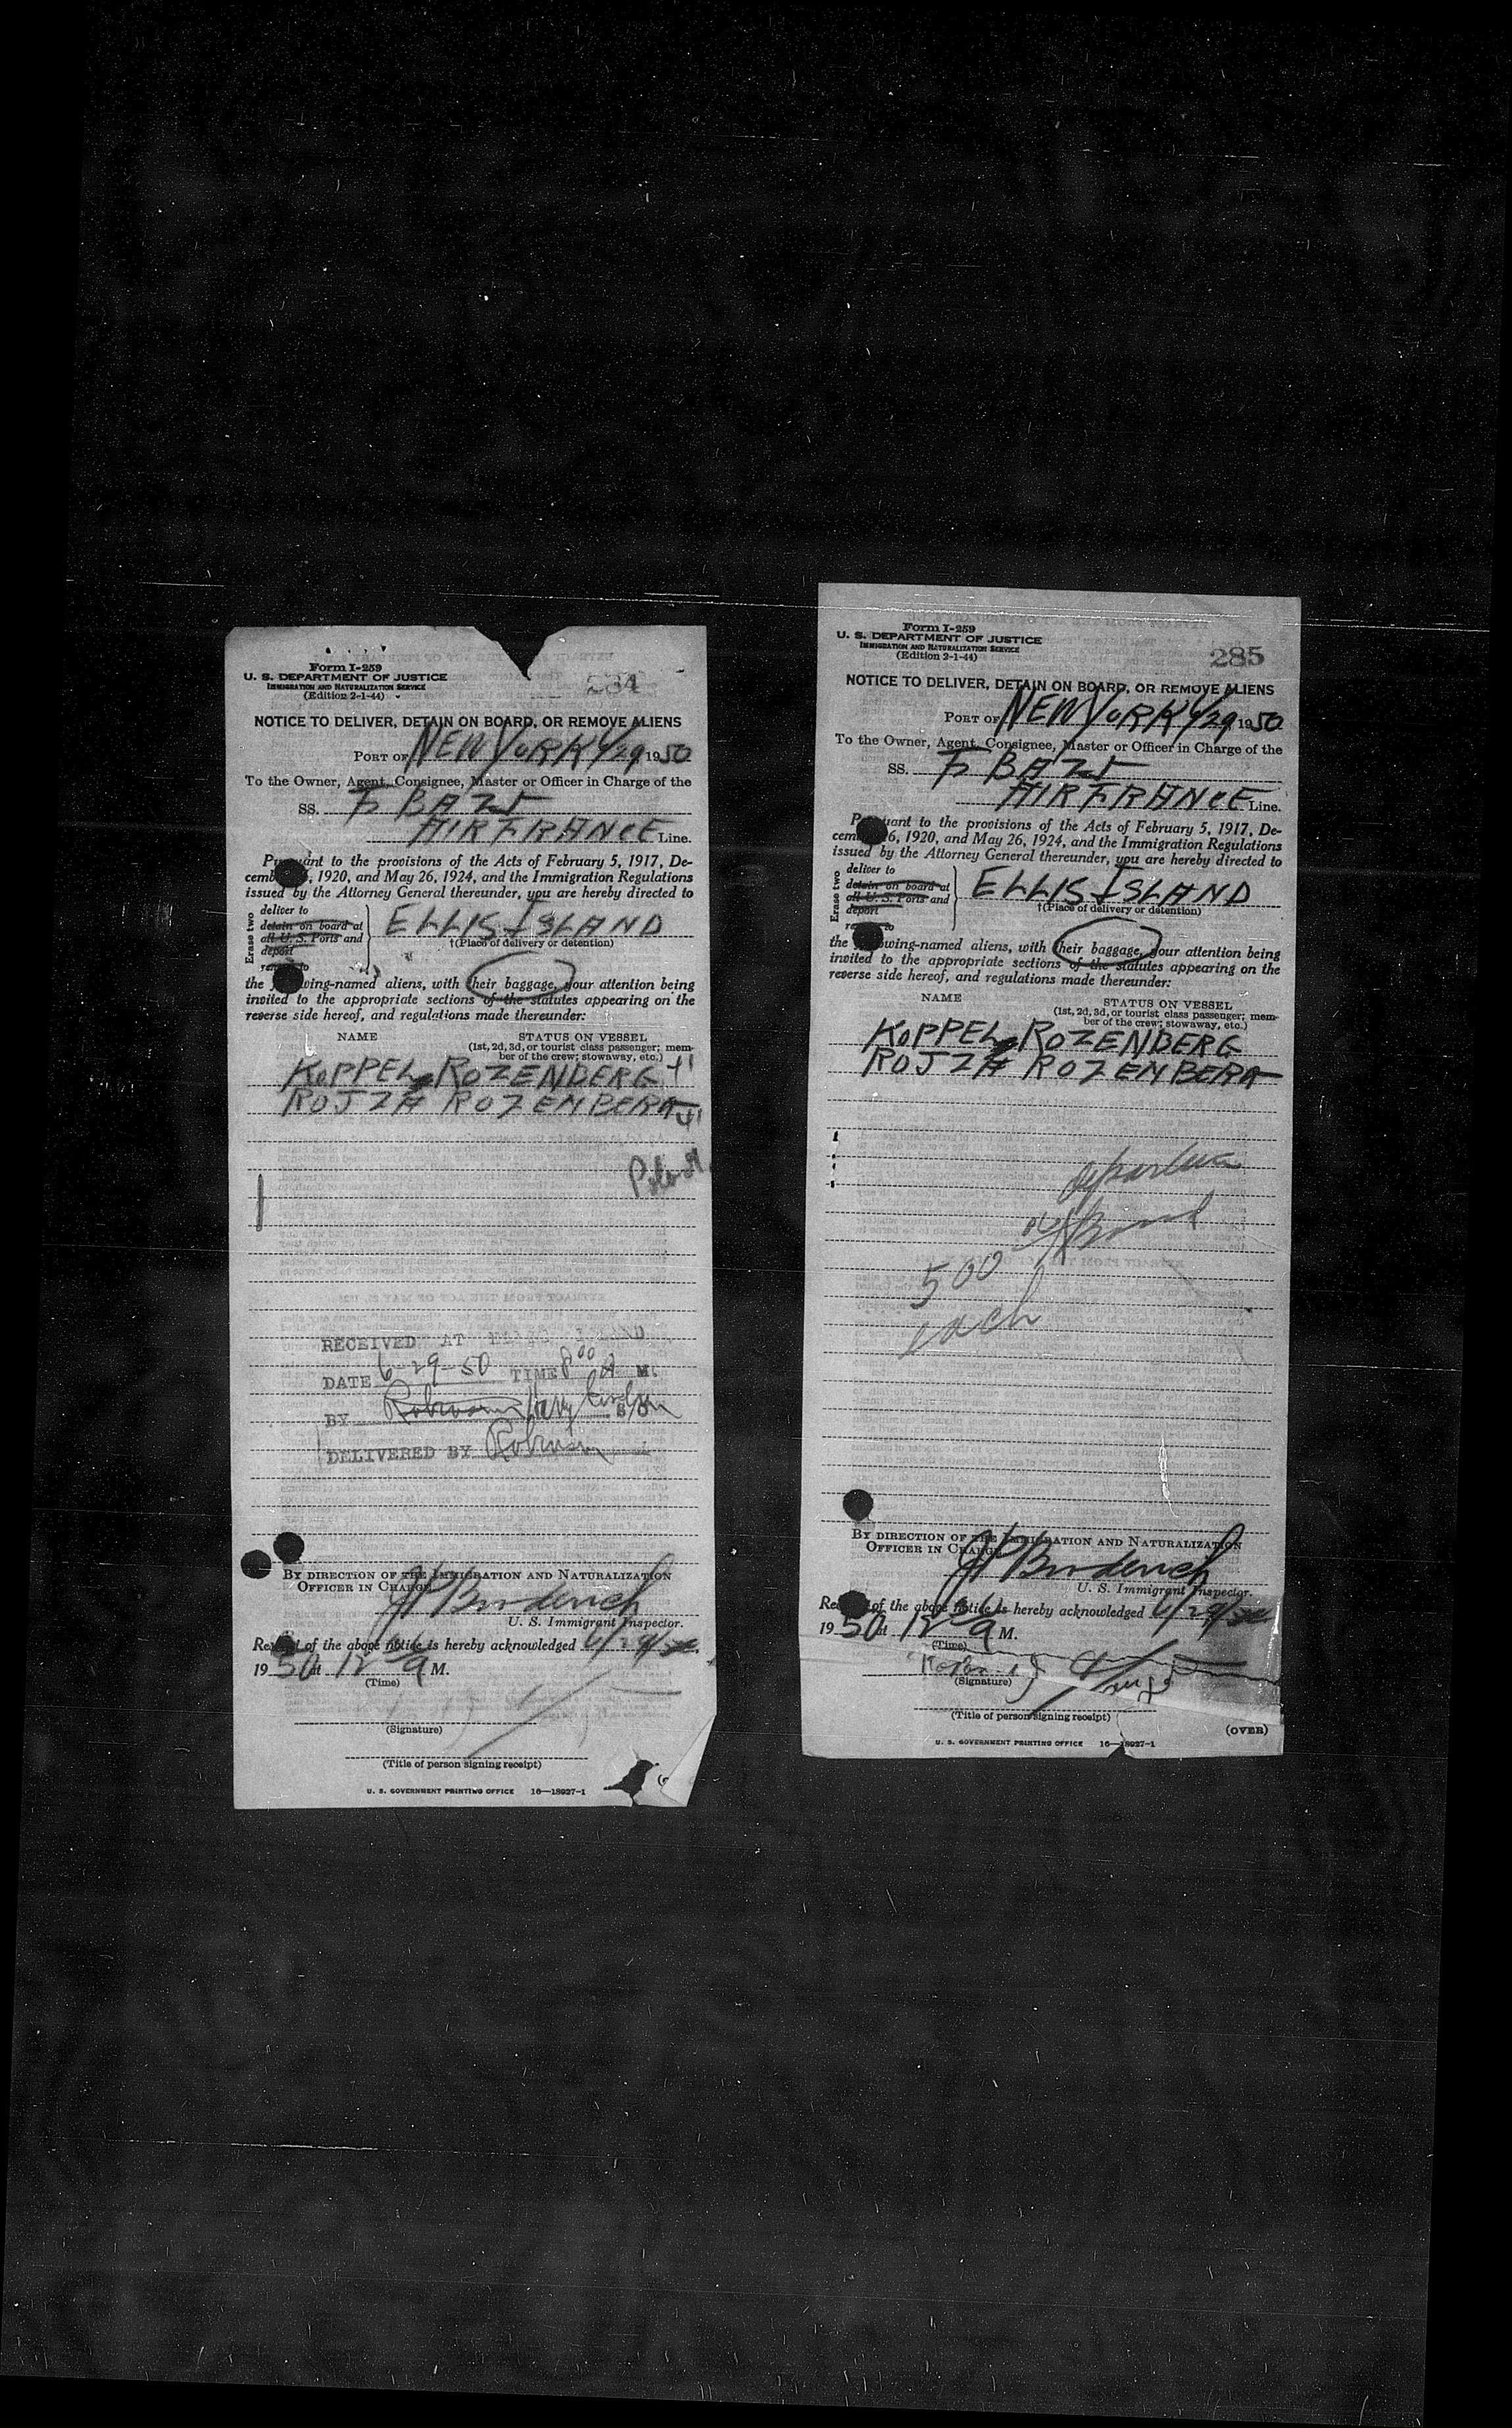 Form I-259
U. S. DEPARTMENT OF JUSTICE
IMMIGRATION AND NATURALIZATION SERVICE
(Edition 2-1-44)
284
NOTICE TO DELIVER, DETAIN ON BOARD, OR REMOVE ALIENS
PORT OF NEW YORK 6/29, 1950
To the Owner, Agent, Consignee, Master or Officer in Charge of the
SS. F BAZT
AIR FRANCE Line.
Pursuant to the provisions of the Acts of February 5, 1917, De-
cember 6, 1920, and May 26, 1924, and the Immigration Regulations
issued by the Attorney General thereunder, you are hereby directed to
Erase two
deliver to
detain on board at
all U. S. Ports and
deport
remove to
ELLIS ISLAND
†(Place of delivery or detention)
the following-named aliens, with their baggage, your attention being
invited to the appropriate sections of the statutes appearing on the
reverse side hereof, and regulations made thereunder:
NAME STATUS ON VESSEL
(1st, 2d, 3d, or tourist class passenger; mem-
ber of the crew; stowaway, etc.)
KOPPEL ROZENBERG
ROJZA ROZENBERG
RECEIVED AT ELLIS ISLAND
DATE 6-29-50 TIME 8 00 A M.
BY Robinson
DELIVERED BY Robinson
BY DIRECTION OF THE IMMIGRATION AND NATURALIZATION
OFFICER IN CHARGE
J P Broderick
U. S. Immigrant Inspector.
Receipt of the above notice is hereby acknowledged 6/29/50
1950 at 12 A M.
(Time)
(Signature)
(Title of person signing receipt)
U. S. GOVERNMENT PRINTING OFFICE 16—18927-1
Form I-259
U. S. DEPARTMENT OF JUSTICE
IMMIGRATION AND NATURALIZATION SERVICE
(Edition 2-1-44)
285
NOTICE TO DELIVER, DETAIN ON BOARD, OR REMOVE ALIENS
PORT OF NEW YORK 6/29, 1950
To the Owner, Agent, Consignee, Master or Officer in Charge of the
SS. F BAZT
AIR FRANCE Line.
Pursuant to the provisions of the Acts of February 5, 1917, De-
cember 6, 1920, and May 26, 1924, and the Immigration Regulations
issued by the Attorney General thereunder, you are hereby directed to
Erase two
deliver to
detain on board at
all U. S. Ports and
deport
remove to
ELLIS ISLAND
†(Place of delivery or detention)
the following-named aliens, with their baggage, your attention being
invited to the appropriate sections of the statutes appearing on the
reverse side hereof, and regulations made thereunder:
NAME STATUS ON VESSEL
(1st, 2d, 3d, or tourist class passenger; mem-
ber of the crew; stowaway, etc.)
KOPPEL ROZENBERG
ROJZA ROZENBERG
departure
Bond
500
each
BY DIRECTION OF THE IMMIGRATION AND NATURALIZATION
OFFICER IN CHARGE
J P Broderick
U. S. Immigrant Inspector.
Receipt of the above notice is hereby acknowledged 6/29/50
1950 at 12 A M.
(Time)
(Signature)
(Title of person signing receipt)
(OVER)
U. S. GOVERNMENT PRINTING OFFICE 16—18927-1